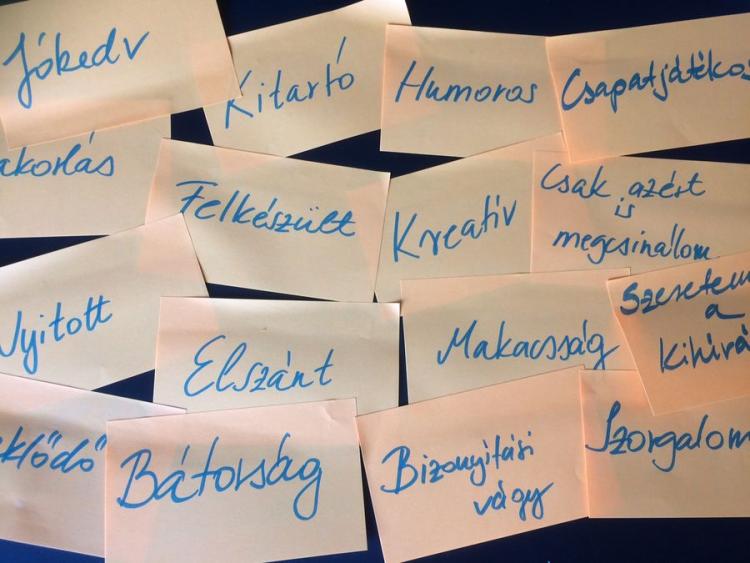 Jókedv
Kitartó
Humoros
Csapatjátékos
akorlás
Felkészült
Kreatív
Csak azért
is
megcsinálom
Nyitott
Elszánt
Makacsság
Szeretem
a
kihívá
klődő
Bátorság
Bizonyítási
vágy
Szorgalom